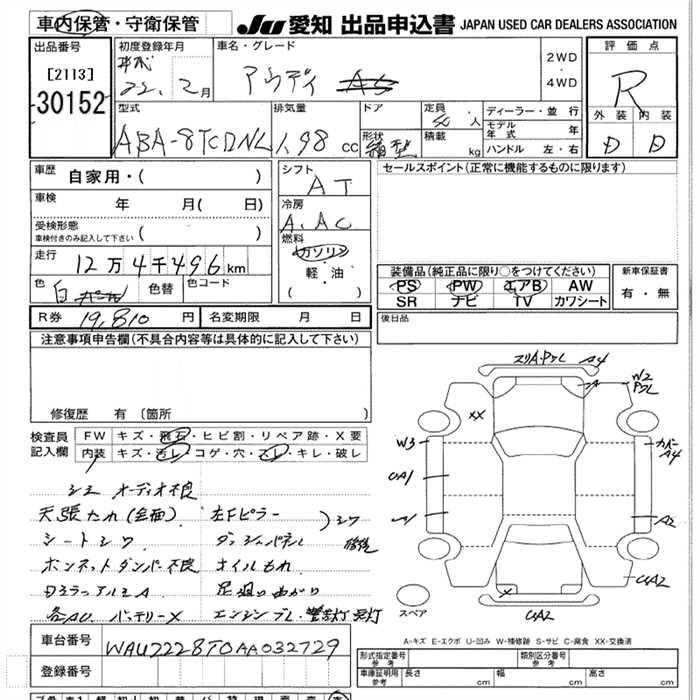 車内保管・守衛保管
JU 愛知 出品申込書 JAPAN USED CAR DEALERS ASSOCIATION
出品番号
[2113]
30152
初度登録年月
22. 2月
車名・グレード
アウディ A5
2WD
4WD
評価点
R
外装 内装
D D
型式
ABA-8TCDNL
排気量
1.98 cc
ドア
形状
箱型
定員
人
積載
kg
ディーラー・並行
モデル年式 年
ハンドル 左・右
車歴
自家用・( )
車検
年 月( 日)
受検形態
車検付きのみ記入して下さい ( )
走行
12万4千496km
色
白パール
色替
色コード
シフト
AT
冷房
A.AC
燃料
ガソリン
軽・油
( )
セールスポイント(正常に機能するものに限ります)
装備品(純正品に限り○をつけてください)
PS PW エアB AW
SR ナビ TV カワシート
新車保証書
有・無
R券 19,810円
名変期限 月 日
後日品
注意事項申告欄(不具合内容等は具体的に記入して下さい)
修復歴 有(箇所 )
検査員
記入欄
FW キズ・飛石・ヒビ割・リペア跡・X要
内装 キズ・汚レ・コゲ・穴・スレ・キレ・破レ
オーディオ不良
天張たれ(全面) 左Fピラー
シートシワ ダッシュパネル
ボンネットダンパー不良 オイルもれ
足廻り曲がり
バッテリーX
A4
XX
W2
W3
カバー
A4
UA1
A2
UA2
X
UA2
スペア
A=キズ E=エクボ U=凹み W=補修跡 S=サビ C=腐食 XX=交換済
車台番号
WAUZZZ8T0AA032729
登録番号
形式指定番号
参考
類別区分番号
参考
車庫証明用
参考
長さ cm
幅 cm
高さ cm